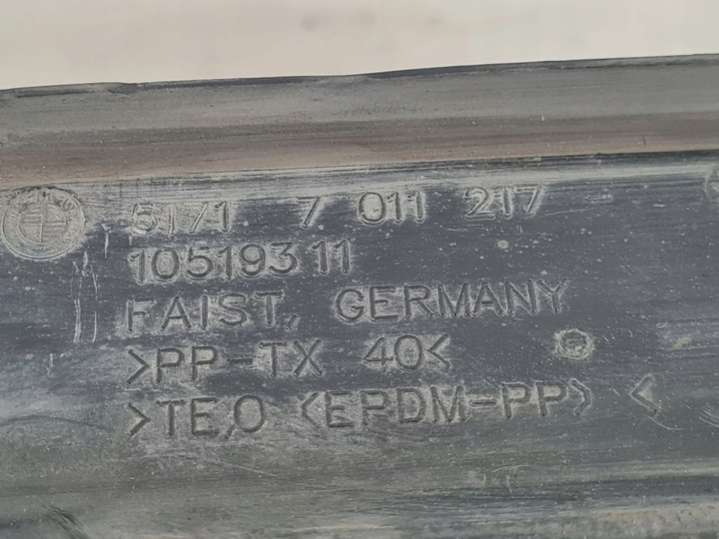 5171 7 011 217
10519311
FAIST, GERMANY
>PP-TX 40<
>TEO <EPDM-PP> <